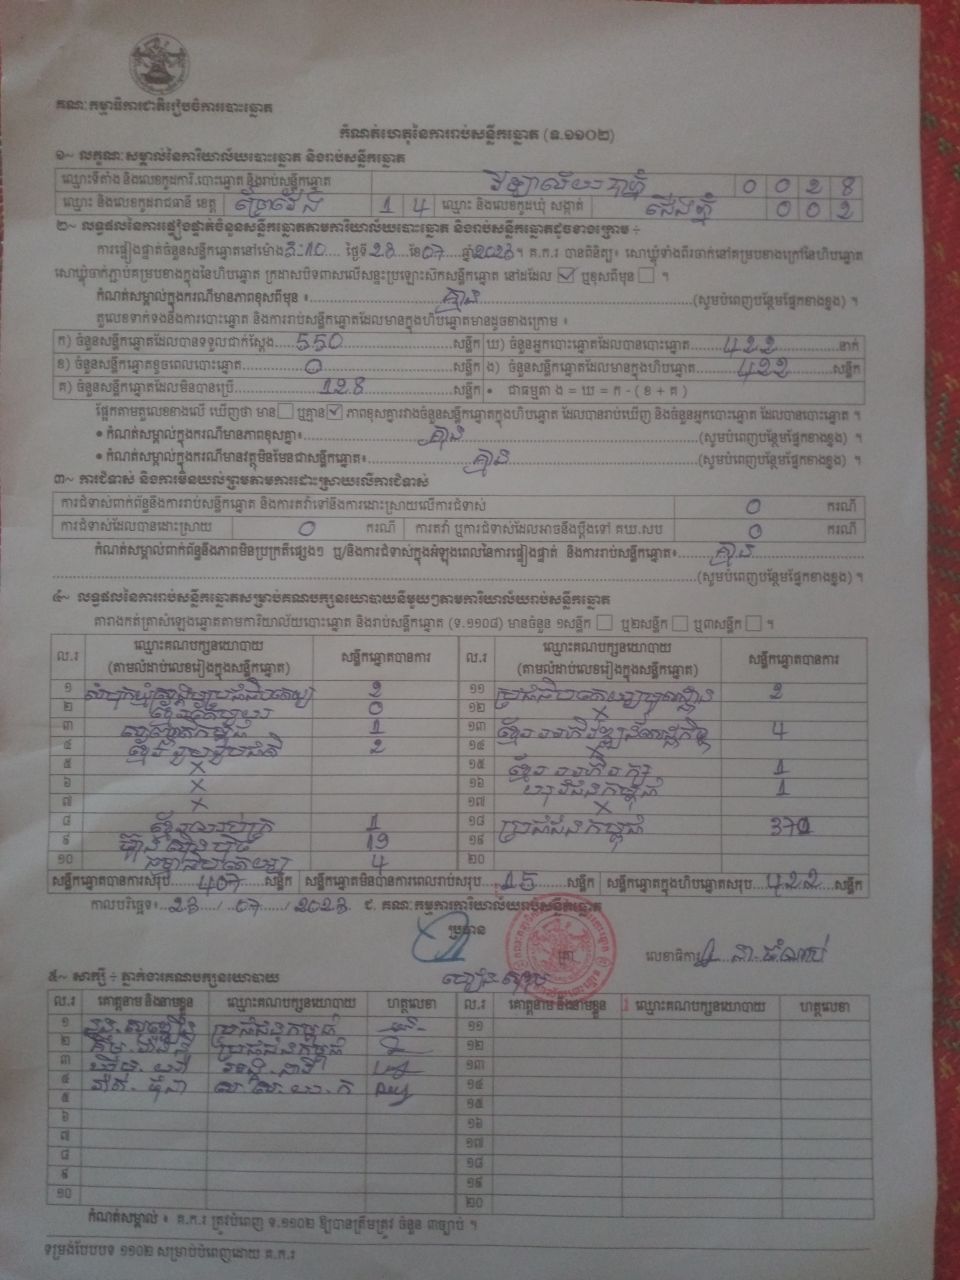 គណៈកម្មាធិការជាតិរៀបចំការបោះឆ្នោត
កំណត់ហេតុនៃការរាប់សន្លឹកឆ្នោត (ទ.១១០២)
១~ លក្ខណៈសម្គាល់នៃការិយាល័យបោះឆ្នោត និងរាប់សន្លឹកឆ្នោត
ឈ្មោះទីតាំង និងលេខកូដការិ.បោះឆ្នោត និងរាប់សន្លឹកឆ្នោត វិទ្យាល័យ 0 0 2 8
ឈ្មោះ និងលេខកូដរាជធានី ខេត្ត ព្រៃវែង 1 4 ឈ្មោះ និងលេខកូដឃុំ សង្កាត់ 0 0 2
២~ លទ្ធផលនៃការផ្ទៀងផ្ទាត់ចំនួនសន្លឹកឆ្នោតតាមការិយាល័យបោះឆ្នោត និងរាប់សន្លឹកឆ្នោតដូចខាងក្រោម ÷
ការផ្ទៀងផ្ទាត់ចំនួនសន្លឹកឆ្នោតនៅម៉ោង 3:10 ថ្ងៃទី 23 ខែ 07 ឆ្នាំ 2023 ។ គ.ក.រ បានពិនិត្យ៖ សោឃ្លុំទាំងពីរចាក់នៅគម្របខាងក្រៅនៃហិបឆ្នោត
សោឃ្លុំចាក់ភ្ជាប់គម្របខាងក្នុងនៃហិបឆ្នោត ក្រដាសបិទពាសលើសន្ទះប្រឡោះស៊កសន្លឹកឆ្នោត នៅដដែល ✓ ឬខុសពីមុន ។
កំណត់សម្គាល់ក្នុងករណីមានភាពខុសពីមុន ៖ គ្មាន (សូមបំពេញបន្ថែមផ្នែកខាងខ្នង) ។
តួលេខទាក់ទងនឹងការបោះឆ្នោត និងការរាប់សន្លឹកឆ្នោតដែលមានក្នុងហិបឆ្នោតមានដូចខាងក្រោម ៖
ក) ចំនួនសន្លឹកឆ្នោតដែលបានទទួលជាក់ស្តែង 550 សន្លឹក ឃ) ចំនួនអ្នកបោះឆ្នោតដែលបានបោះឆ្នោត 422 នាក់
ខ) ចំនួនសន្លឹកឆ្នោតខូចពេលបោះឆ្នោត 0 សន្លឹក ង) ចំនួនសន្លឹកឆ្នោតដែលមានក្នុងហិបឆ្នោត 422 សន្លឹក
គ) ចំនួនសន្លឹកឆ្នោតដែលមិនបានប្រើ 128 សន្លឹក • ជាធម្មតា ង = ឃ = ក - ( ខ + គ )
ផ្អែកតាមតួលេខខាងលើ ឃើញថា មាន ឬគ្មាន ✓ ភាពខុសគ្នារវាងចំនួនសន្លឹកឆ្នោតក្នុងហិបឆ្នោត ដែលបានរាប់ឃើញ និងចំនួនអ្នកបោះឆ្នោត ដែលបានបោះឆ្នោត ។
• កំណត់សម្គាល់ក្នុងករណីមានភាពខុសគ្នា៖ គ្មាន (សូមបំពេញបន្ថែមផ្នែកខាងខ្នង) ។
• កំណត់សម្គាល់ក្នុងករណីមានវត្ថុមិនមែនជាសន្លឹកឆ្នោត៖ គ្មាន (សូមបំពេញបន្ថែមផ្នែកខាងខ្នង) ។
៣~ ការជំទាស់ និងការមិនយល់ព្រមតាមការដោះស្រាយលើការជំទាស់
ការជំទាស់ពាក់ព័ន្ធនឹងការរាប់សន្លឹកឆ្នោត និងការតវ៉ាទៅនឹងការដោះស្រាយលើការជំទាស់ 0 ករណី
ការជំទាស់ដែលបានដោះស្រាយ 0 ករណី ការតវ៉ា ឬការជំទាស់ដែលអាចនឹងប្តឹងទៅ គឃ.សប 0 ករណី
កំណត់សម្គាល់ពាក់ព័ន្ធនឹងភាពមិនប្រក្រតីផ្សេងៗ ឬ/និងការជំទាស់ក្នុងអំឡុងពេលនៃការផ្ទៀងផ្ទាត់ និងការរាប់សន្លឹកឆ្នោត៖ គ្មាន
(សូមបំពេញបន្ថែមផ្នែកខាងខ្នង) ។
៤~ លទ្ធផលនៃការរាប់សន្លឹកឆ្នោតសម្រាប់គណបក្សនយោបាយនីមួយៗតាមការិយាល័យរាប់សន្លឹកឆ្នោត
តារាងកត់ត្រាសំឡេងឆ្នោតតាមការិយាល័យបោះឆ្នោត និងរាប់សន្លឹកឆ្នោត (ទ.១១០៨) មានចំនួន ១សន្លឹក ឬ២សន្លឹក ឬ៣សន្លឹក ។
ល.រ ឈ្មោះគណបក្សនយោបាយ (តាមលំដាប់លេខរៀងក្នុងសន្លឹកឆ្នោត) សន្លឹកឆ្នោតបានការ ល.រ ឈ្មោះគណបក្សនយោបាយ (តាមលំដាប់លេខរៀងក្នុងសន្លឹកឆ្នោត) សន្លឹកឆ្នោតបានការ
១ 2 ១១ 2
២ 0 ១២ x
៣ 1 ១៣ 4
៤ ខ្មែររួបរួមជាតិ 2 ១៤ x
៥ x ១៥ ខ្មែរអភិរក្ស 1
៦ x ១៦ យុវជនកម្ពុជា 1
៧ x ១៧ x
៨ 1 ១៨ ប្រជាជនកម្ពុជា 370
៩ ហ៊្វុនស៊ិនប៉ិច 19 ១៩
១០ 4 ២០
សន្លឹកឆ្នោតបានការសរុប 407 សន្លឹក សន្លឹកឆ្នោតមិនបានការពេលរាប់សរុប 15 សន្លឹក សន្លឹកឆ្នោតក្នុងហិបឆ្នោតសរុប 422 សន្លឹក
កាលបរិច្ឆេទ៖ 23 / 07 / 2023 ជ. គណៈកម្មការការិយាល័យរាប់សន្លឹកឆ្នោត
ប្រធាន ត្រា លេខាធិការ
៥~ សាក្សី ÷ ភ្នាក់ងារគណបក្សនយោបាយ
ល.រ គោត្តនាម និងនាមខ្លួន ឈ្មោះគណបក្សនយោបាយ ហត្ថលេខា ល.រ គោត្តនាម និងនាមខ្លួន ឈ្មោះគណបក្សនយោបាយ ហត្ថលេខា
១ ប្រជាជនកម្ពុជា ១១
២ ប្រជាជនកម្ពុជា ១២
៣ ១៣
៤ ១៤
៥ ១៥
៦ ១៦
៧ ១៧
៨ ១៨
៩ ១៩
១០ ២០
កំណត់សម្គាល់ ៖ គ.ក.រ ត្រូវបំពេញ ទ.១១០២ ឱ្យបានត្រឹមត្រូវ ចំនួន ៣ច្បាប់ ។
ទម្រង់បែបបទ ១១០២ សម្រាប់បំពេញដោយ គ.ក.រ